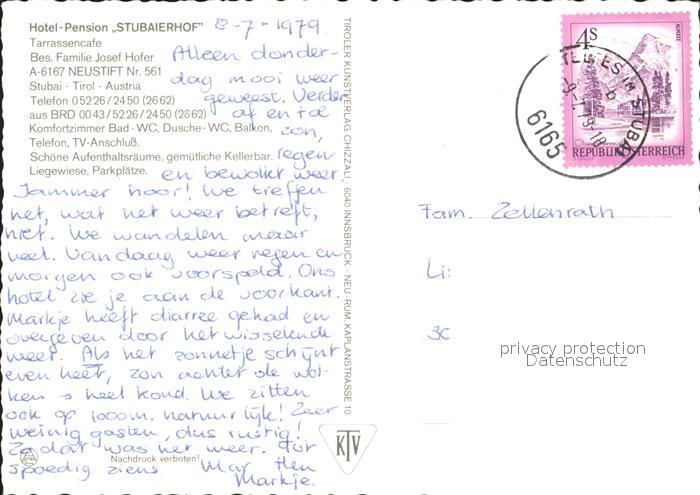 Hotel-Pension „STUBAIERHOF"
Tarrassencafe
Bes. Familie Josef Hofer
A-6167 NEUSTIFT Nr. 561
Stubai - Tirol - Austria
Telefon 05226/2450 (2662)
aus BRD 0043/5226/2450 (2662)
Komfortzimmer Bad-WC, Dusche-WC, Balkon,
Telefon, TV-Anschluß.
Schöne Aufenthaltsräume, gemütliche Kellerbar.
Liegewiese, Parkplätze.
8-7-1979.
Alleen donder-
dag mooi weer
geweest. Verder
af en toe
zon,
regen
en bewolkt weer.
Jammer hoor! We treffen
het, wat het weer betreft,
niet. We wandelen maar
veel. Vandaag weer regen en
morgen ook voorspeld. Ons
hotel zie je aan de voorkant.
Markje heeft diarree gehad en
overgeven door het wisselende
weer. Als het zonnetje schijnt
even heet, zon achter de wol-
ken → heel koud. We zitten
ook op 1000m. natuurlijk! Zeer
weinig gasten, dus rustig!
Zo dat was het weer. Tot
spoedig ziens. Mar Hen
Markje.
Nachdruck verboten!
TIROLER KUNSTVERLAG CHIZZALI, 6040 INNSBRUCK - NEU-RUM, KAPLANSTRASSE 10
KTV
4S
REPUBLIK ÖSTERREICH
TELFES IM STUBAI
-9.-7.79-18
b
6165
Fam. Zellenrath
Li:
3c
privacy protection
Datenschutz